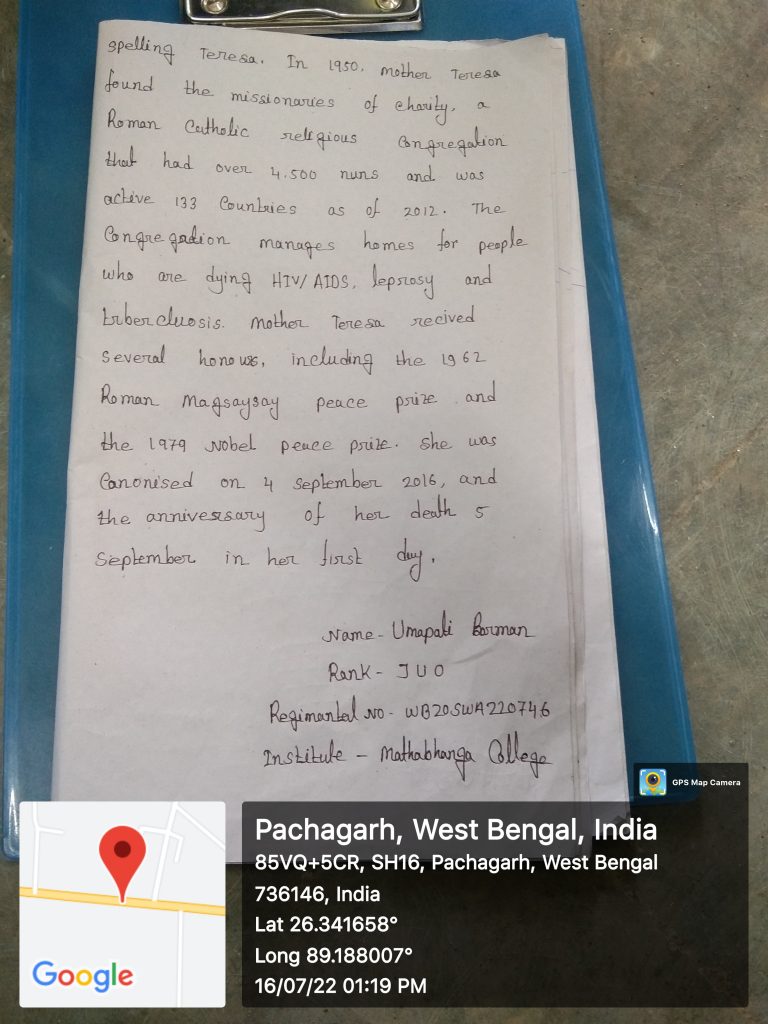 spelling Teresa. In 1950. Mother Teresa
found the missionaries of charity, a
Roman Catholic religious Congregation
that had over 4.500 nuns and was
active 133 Countries as of 2012. The
Congregation manages homes for people
who are dying HIV/AIDS, leprosy and
trbercluosis. Mother Teresa recived
several honours, including the 1962
Roman Magsaysay peace prize and
the 1979 Nobel peace prize. She was
Canonised on 4 September 2016, and
the anniversary of her death 5
September in her first day.
Name - Umapati Barman
Rank - JUO
Regimantal No - WB20SWA220746
Institute - Mathabhanga College
GPS Map Camera
Pachagarh, West Bengal, India
85VQ+5CR, SH16, Pachagarh, West Bengal
736146, India
Lat 26.341658°
Long 89.188007°
16/07/22 01:19 PM
Google